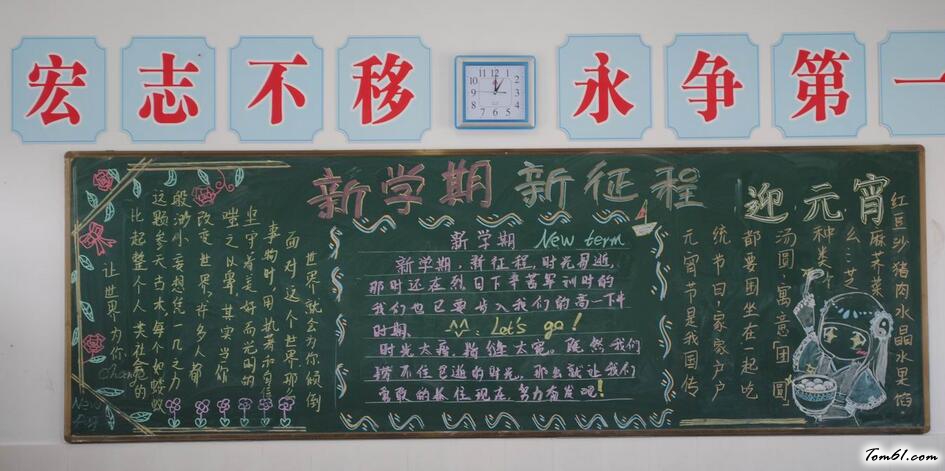 宏志不移
永争第一
新学期 新征程
新学期 New term
新学期,新征程,时光易逝
那时还在烈日下辛苦军训时的
我们也已要步入我们的高一下半
时期。^^: Let's go!
时光太瘦,指缝太宽。既然我们
捞不住已逝的时光,那么就让我们
勇敢的抓住现在,努力奋发吧!
世界就会为你倾倒
面对这个世界,那
事物时,用执着和自信
坚守着美好而光明的
嗤之以鼻,其实当你
改变世界,许多人都
般渺小,妄想统一几之力
这颗参天古木,每个如蜉蝣
比起整个人类社会的
让世界为你
change
迎元宵
元宵节是我国传
统节日,家家户户
都要围坐在一起吃
汤圆,寓意「团圆」
种类
么:芝
麻荠菜
红豆沙猪肉水晶水果馅。
Tom61.com